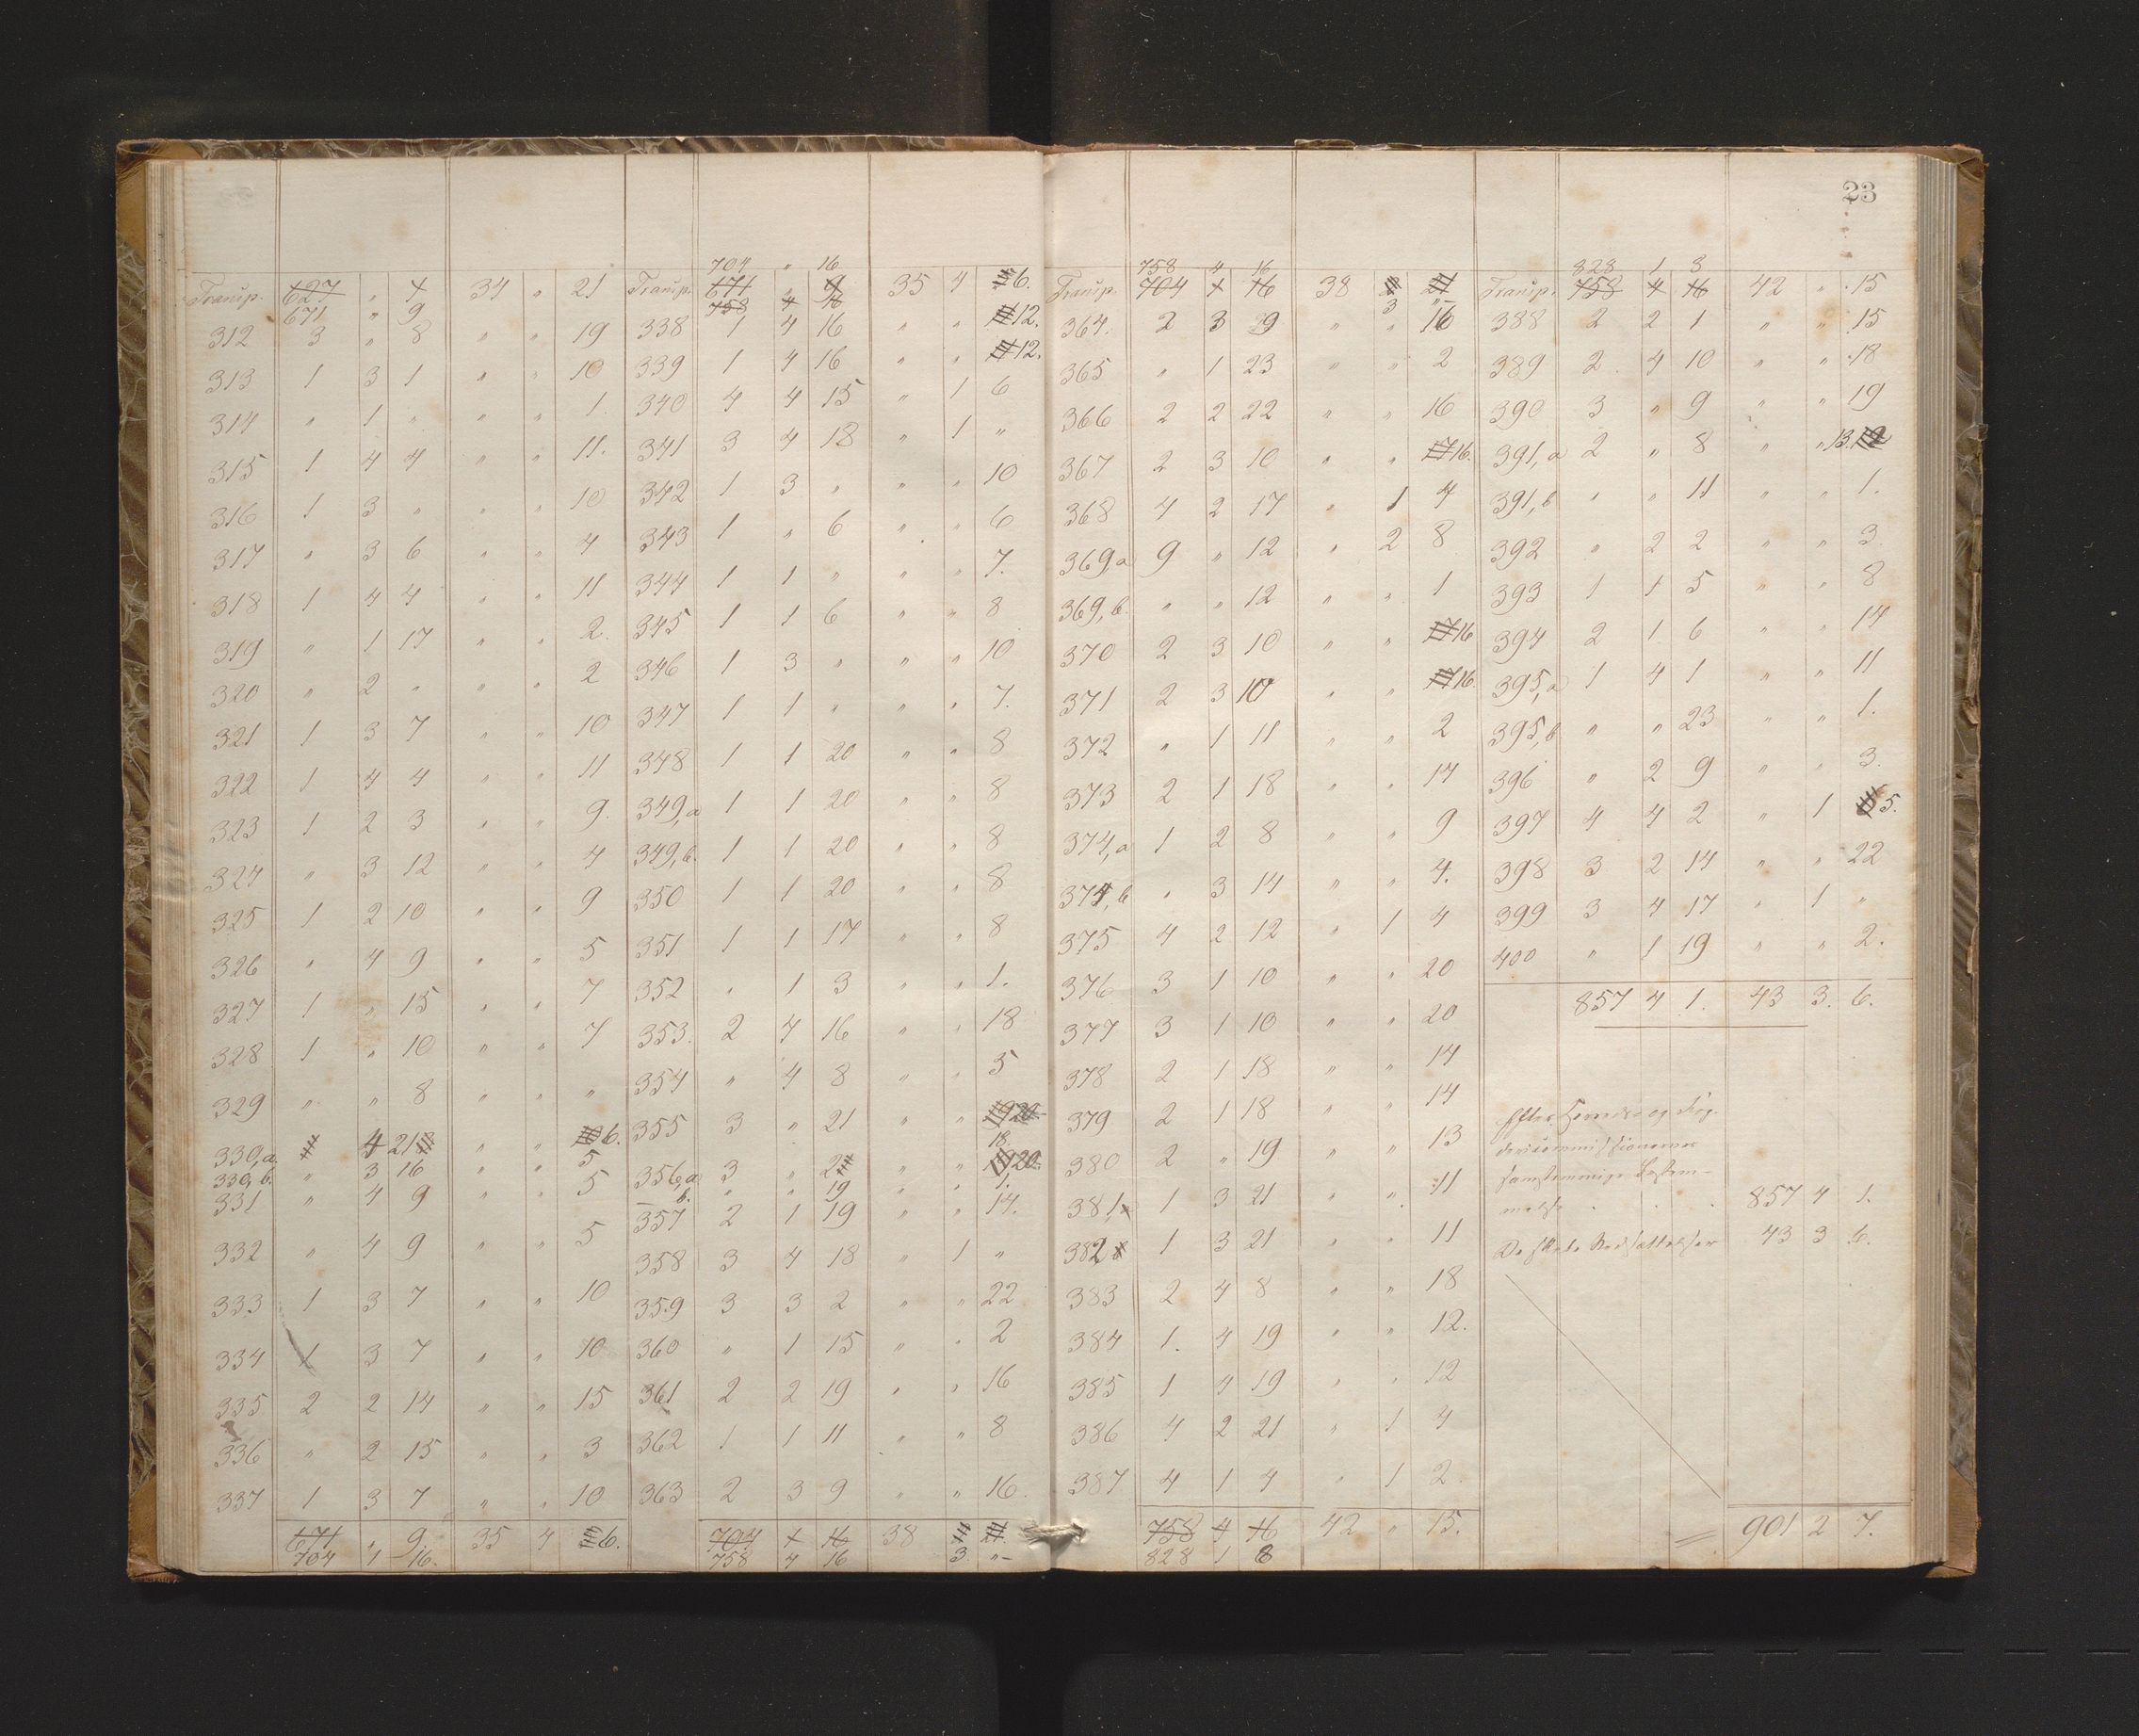 23
Transp. 627 " 4 34 " 21
671 " 9
312 3 " 8 " " 19
313 1 3 1 " " 10
314 " 1 " " " 1.
315 1 4 4 " " 11.
316 1 3 " " " 10
317 " 3 6 " " 4
318 1 4 4 " " 11
319 " 1 17 " " 2.
320 " 2 " " " 2
321 1 3 7 " " 10
322 1 4 4 " " 11
323 1 2 3 " " 9.
324 " 3 12 " " 4
325 1 2 10 " " 9
326 " 4 9 " " 5
327 1 " 15 " " 7
328 1 " 10 " " 7
329 " " 8 " " "
330,a 4 21 " " 6.
330,b. " 3 16 " " 5
331 " 4 9 " " 5
332 " 4 9 " " 5
333 1 3 7 " " 10
334 1 3 7 " " 10
335 2 2 14 " " 15
336 " 2 15 " " 3
337 1 3 7 " " 10
671 " 9. 35 4 6.
704 1 16.
704 " 16
Transp. 671 " 9 35 4 6.
758 4 16
338 1 4 16 " " 12.
339 1 4 16 " " 12.
340 4 4 15 " 1 6
341 3 4 18 " 1 "
342 1 3 " " " 10
343 1 " 6 " " 6
344 1 1 " " " 7.
345 1 1 6 " " 8
346 1 3 " " " 10
347 1 1 " " " 7.
348 1 1 20 " " 8
349,a 1 1 20 " " 8
349,b. 1 1 20 " " 8
350 1 1 20 " " 8
351 1 1 17 " " 8
352 " 1 3 " " 1.
353. 2 4 16 " " 18
354 " 4 8 " " 5
355 3 " 21 " " 20
18.
356,a 3 " 2 " " 20
b. " " 19 " " 1.
357 2 1 19 " " 14.
358 3 4 18 " 1 "
359 3 3 2 " " 22
360 " 1 15 " " 2
361 2 2 19 " " 16
362 1 1 11 " " 8
363 2 3 9 " " 16.
704 4 16 38
758 4 16 3 "
758 4 16
Transp. 704 4 16 38
3 "
364. 2 3 29 " " 16
365 " 1 23 " " 2
366 2 2 22 " " 16
367 2 3 10 " " 16.
368 4 2 17 " 1 4
369a 9 " 12 " 2 8
369,b. " " 12 " " 1
370 2 3 10 " " 16
371 2 3 10 " " 16.
372 " 1 11 " " 2
373 2 1 18 " " 14
374,a 1 2 8 " " 9
374,b " 3 14 " " 4.
375 4 2 12 " 1 4
376 3 1 10 " " 20
377 3 1 10 " " 20
378 2 1 18 " " 14
379 2 1 18 " " 14
380 2 " 19 " " 13
381 1 3 21 " " 11
382 1 3 21 " " 11
383 2 4 8 " " 18
384 1. 4 19 " " 12.
385 1 4 19 " " 12
386 4 2 21 " 1 4
387 4 1 4 " 1 2.
758 4 16 42 " 15.
828 1 8
828 1 3
Transp. 758 4 16 42 " 15
388 2 2 1 " " 15
389 2 4 10 " " 18
390 3 " 9 " " 19
391,a 2 " 8 " " 13.
391,b " " 11 " " 1.
392 " 2 2 " " 3
393 1 1 5 " " 8
394 2 1 6 " " 14
395,a 1 4 1 " " 11
395,b " " 23 " " 1.
396 " 2 9 " " 3.
397 4 4 2 " 1 5.
398 3 2 14 " " 22
399 3 4 17 " 1 "
400 " 1 19 " " 2.
857 4 1. 43 3. 6.
Efter Herreds og Fog-
dericommissionernes
samstemmige Bestem-
melse . . . 857 4 1.
De skete Nedsættelser 43 3 6.
= 901 2 7.